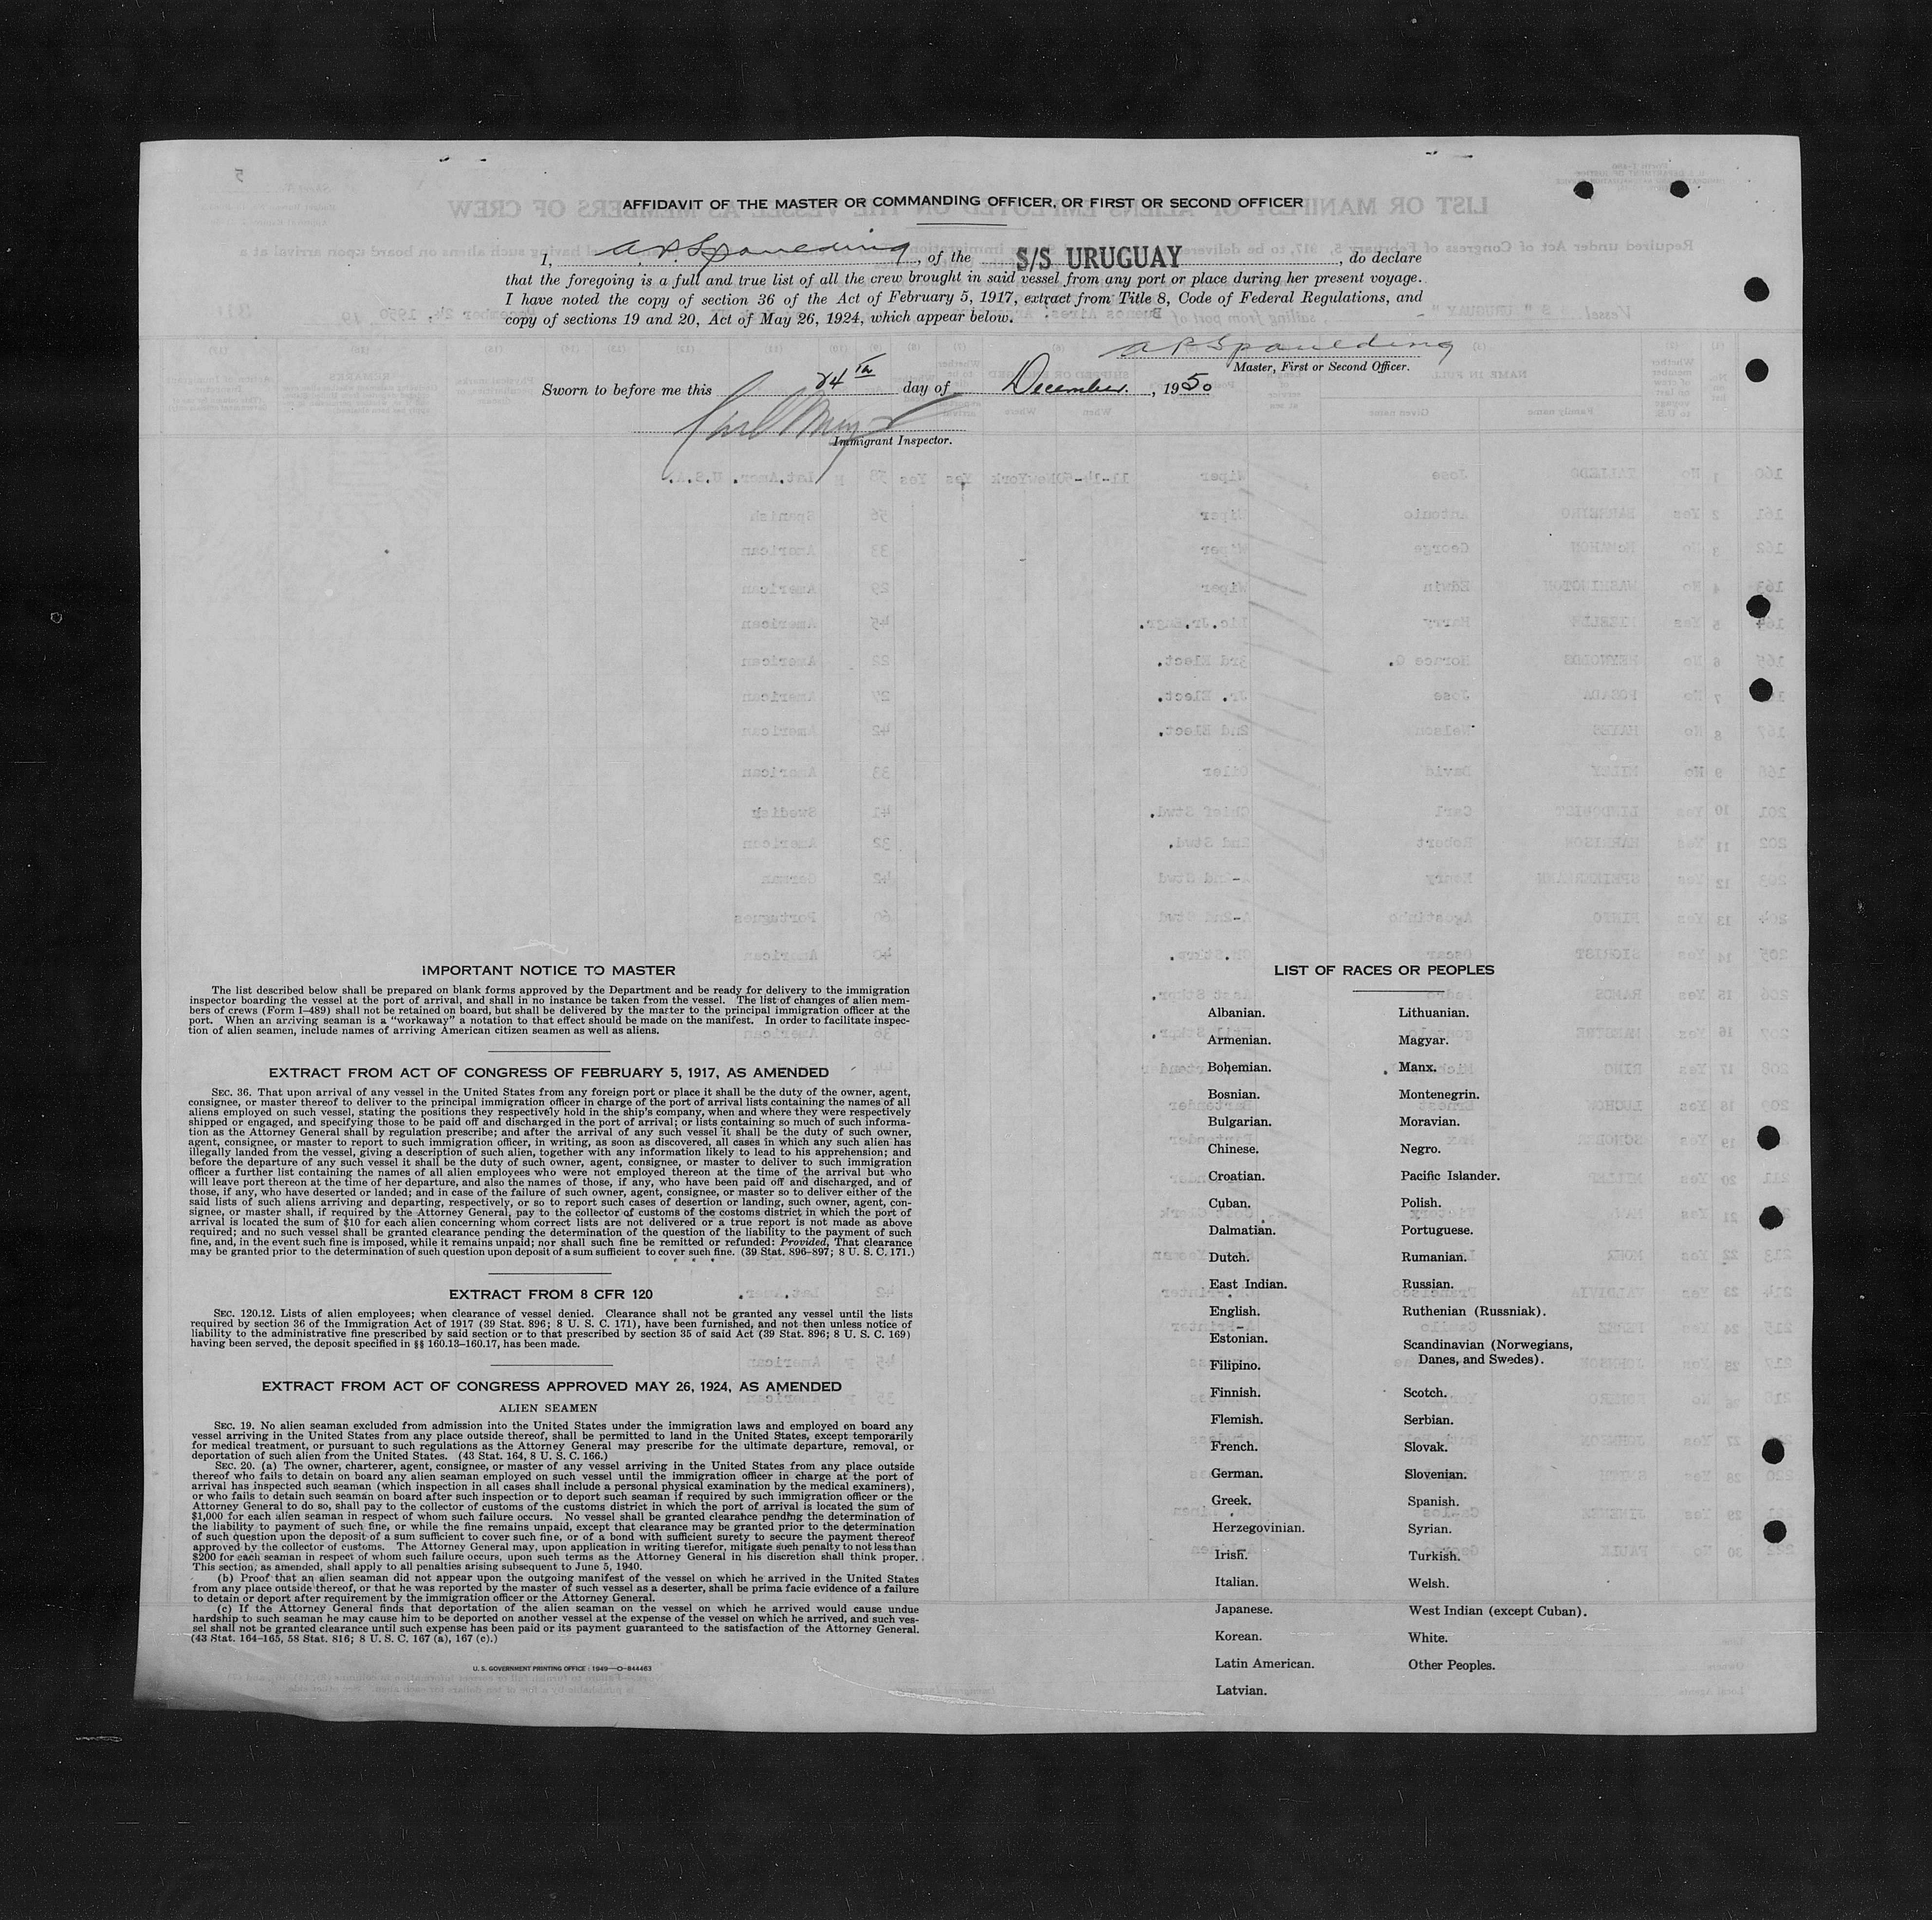 AFFIDAVIT OF THE MASTER OR COMMANDING OFFICER, OR FIRST OR SECOND OFFICER
I, A. P. Spaulding, of the S/S URUGUAY, do declare
that the foregoing is a full and true list of all the crew brought in said vessel from any port or place during her present voyage.
I have noted the copy of section 36 of the Act of February 5, 1917, extract from Title 8, Code of Federal Regulations, and
copy of sections 19 and 20, Act of May 26, 1924, which appear below.
A P Spaulding
Master, First or Second Officer.
Sworn to before me this 24th day of December, 1950
Immigrant Inspector.
IMPORTANT NOTICE TO MASTER
The list described below shall be prepared on blank forms approved by the Department and be ready for delivery to the immigration
inspector boarding the vessel at the port of arrival, and shall in no instance be taken from the vessel. The list of changes of alien mem-
bers of crews (Form I-489) shall not be retained on board, but shall be delivered by the master to the principal immigration officer at the
port. When an arriving seaman is a "workaway" a notation to that effect should be made on the manifest. In order to facilitate inspec-
tion of alien seamen, include names of arriving American citizen seamen as well as aliens.
EXTRACT FROM ACT OF CONGRESS OF FEBRUARY 5, 1917, AS AMENDED
SEC. 36. That upon arrival of any vessel in the United States from any foreign port or place it shall be the duty of the owner, agent,
consignee, or master thereof to deliver to the principal immigration officer in charge of the port of arrival lists containing the names of all
aliens employed on such vessel, stating the positions they respectively hold in the ship's company, when and where they were respectively
shipped or engaged, and specifying those to be paid off and discharged in the port of arrival; or lists containing so much of such informa-
tion as the Attorney General shall by regulation prescribe; and after the arrival of any such vessel it shall be the duty of such owner,
agent, consignee, or master to report to such immigration officer, in writing, as soon as discovered, all cases in which any such alien has
illegally landed from the vessel, giving a description of such alien, together with any information likely to lead to his apprehension; and
before the departure of any such vessel it shall be the duty of such owner, agent, consignee, or master to deliver to such immigration
officer a further list containing the names of all alien employees who were not employed thereon at the time of the arrival but who
will leave port thereon at the time of her departure, and also the names of those, if any, who have been paid off and discharged, and of
those, if any, who have deserted or landed; and in case of the failure of such owner, agent, consignee, or master so to deliver either of the
said lists of such aliens arriving and departing, respectively, or so to report such cases of desertion or landing, such owner, agent, con-
signee, or master shall, if required by the Attorney General, pay to the collector of customs of the costoms district in which the port of
arrival is located the sum of $10 for each alien concerning whom correct lists are not delivered or a true report is not made as above
required; and no such vessel shall be granted clearance pending the determination of the question of the liability to the payment of such
fine, and, in the event such fine is imposed, while it remains unpaid; nor shall such fine be remitted or refunded: Provided, That clearance
may be granted prior to the determination of such question upon deposit of a sum sufficient to cover such fine. (39 Stat. 896-897; 8 U. S. C. 171.)
EXTRACT FROM 8 CFR 120
SEC. 120.12. Lists of alien employees; when clearance of vessel denied. Clearance shall not be granted any vessel until the lists
required by section 36 of the Immigration Act of 1917 (39 Stat. 896; 8 U. S. C. 171), have been furnished, and not then unless notice of
liability to the administrative fine prescribed by said section or to that prescribed by section 35 of said Act (39 Stat. 896; 8 U. S. C. 169)
having been served, the deposit specified in §§ 160.13-160.17, has been made.
EXTRACT FROM ACT OF CONGRESS APPROVED MAY 26, 1924, AS AMENDED
ALIEN SEAMEN
SEC. 19. No alien seaman excluded from admission into the United States under the immigration laws and employed on board any
vessel arriving in the United States from any place outside thereof, shall be permitted to land in the United States, except temporarily
for medical treatment, or pursuant to such regulations as the Attorney General may prescribe for the ultimate departure, removal, or
deportation of such alien from the United States. (43 Stat. 164, 8 U. S. C. 166.)
SEC. 20. (a) The owner, charterer, agent, consignee, or master of any vessel arriving in the United States from any place outside
thereof who fails to detain on board any alien seaman employed on such vessel until the immigration officer in charge at the port of
arrival has inspected such seaman (which inspection in all cases shall include a personal physical examination by the medical examiners),
or who fails to detain such seaman on board after such inspection or to deport such seaman if required by such immigration officer or the
Attorney General to do so, shall pay to the collector of customs of the customs district in which the port of arrival is located the sum of
$1,000 for each alien seaman in respect of whom such failure occurs. No vessel shall be granted clearance pending the determination of
the liability to payment of such fine, or while the fine remains unpaid, except that clearance may be granted prior to the determination
of such question upon the deposit of a sum sufficient to cover such fine, or of a bond with sufficient surety to secure the payment thereof
approved by the collector of customs. The Attorney General may, upon application in writing therefor, mitigate such penalty to not less than
$200 for each seaman in respect of whom such failure occurs, upon such terms as the Attorney General in his discretion shall think proper.
This section, as amended, shall apply to all penalties arising subsequent to June 5, 1940.
(b) Proof that an alien seaman did not appear upon the outgoing manifest of the vessel on which he arrived in the United States
from any place outside thereof, or that he was reported by the master of such vessel as a deserter, shall be prima facie evidence of a failure
to detain or deport after requirement by the immigration officer or the Attorney General.
(c) If the Attorney General finds that deportation of the alien seaman on the vessel on which he arrived would cause undue
hardship to such seaman he may cause him to be deported on another vessel at the expense of the vessel on which he arrived, and such ves-
sel shall not be granted clearance until such expense has been paid or its payment guaranteed to the satisfaction of the Attorney General.
(43 Stat. 164-165, 58 Stat. 816; 8 U. S. C. 167 (a), 167 (c).)
U. S. GOVERNMENT PRINTING OFFICE : 1949—O-844463
LIST OF RACES OR PEOPLES
Albanian.
Armenian.
Bohemian.
Bosnian.
Bulgarian.
Chinese.
Croatian.
Cuban.
Dalmatian.
Dutch.
East Indian.
English.
Estonian.
Filipino.
Finnish.
Flemish.
French.
German.
Greek.
Herzegovinian.
Irish.
Italian.
Japanese.
Korean.
Latin American.
Latvian.
Lithuanian.
Magyar.
Manx.
Montenegrin.
Moravian.
Negro.
Pacific Islander.
Polish.
Portuguese.
Rumanian.
Russian.
Ruthenian (Russniak).
Scandinavian (Norwegians,
Danes, and Swedes).
Scotch.
Serbian.
Slovak.
Slovenian.
Spanish.
Syrian.
Turkish.
Welsh.
West Indian (except Cuban).
White.
Other Peoples.